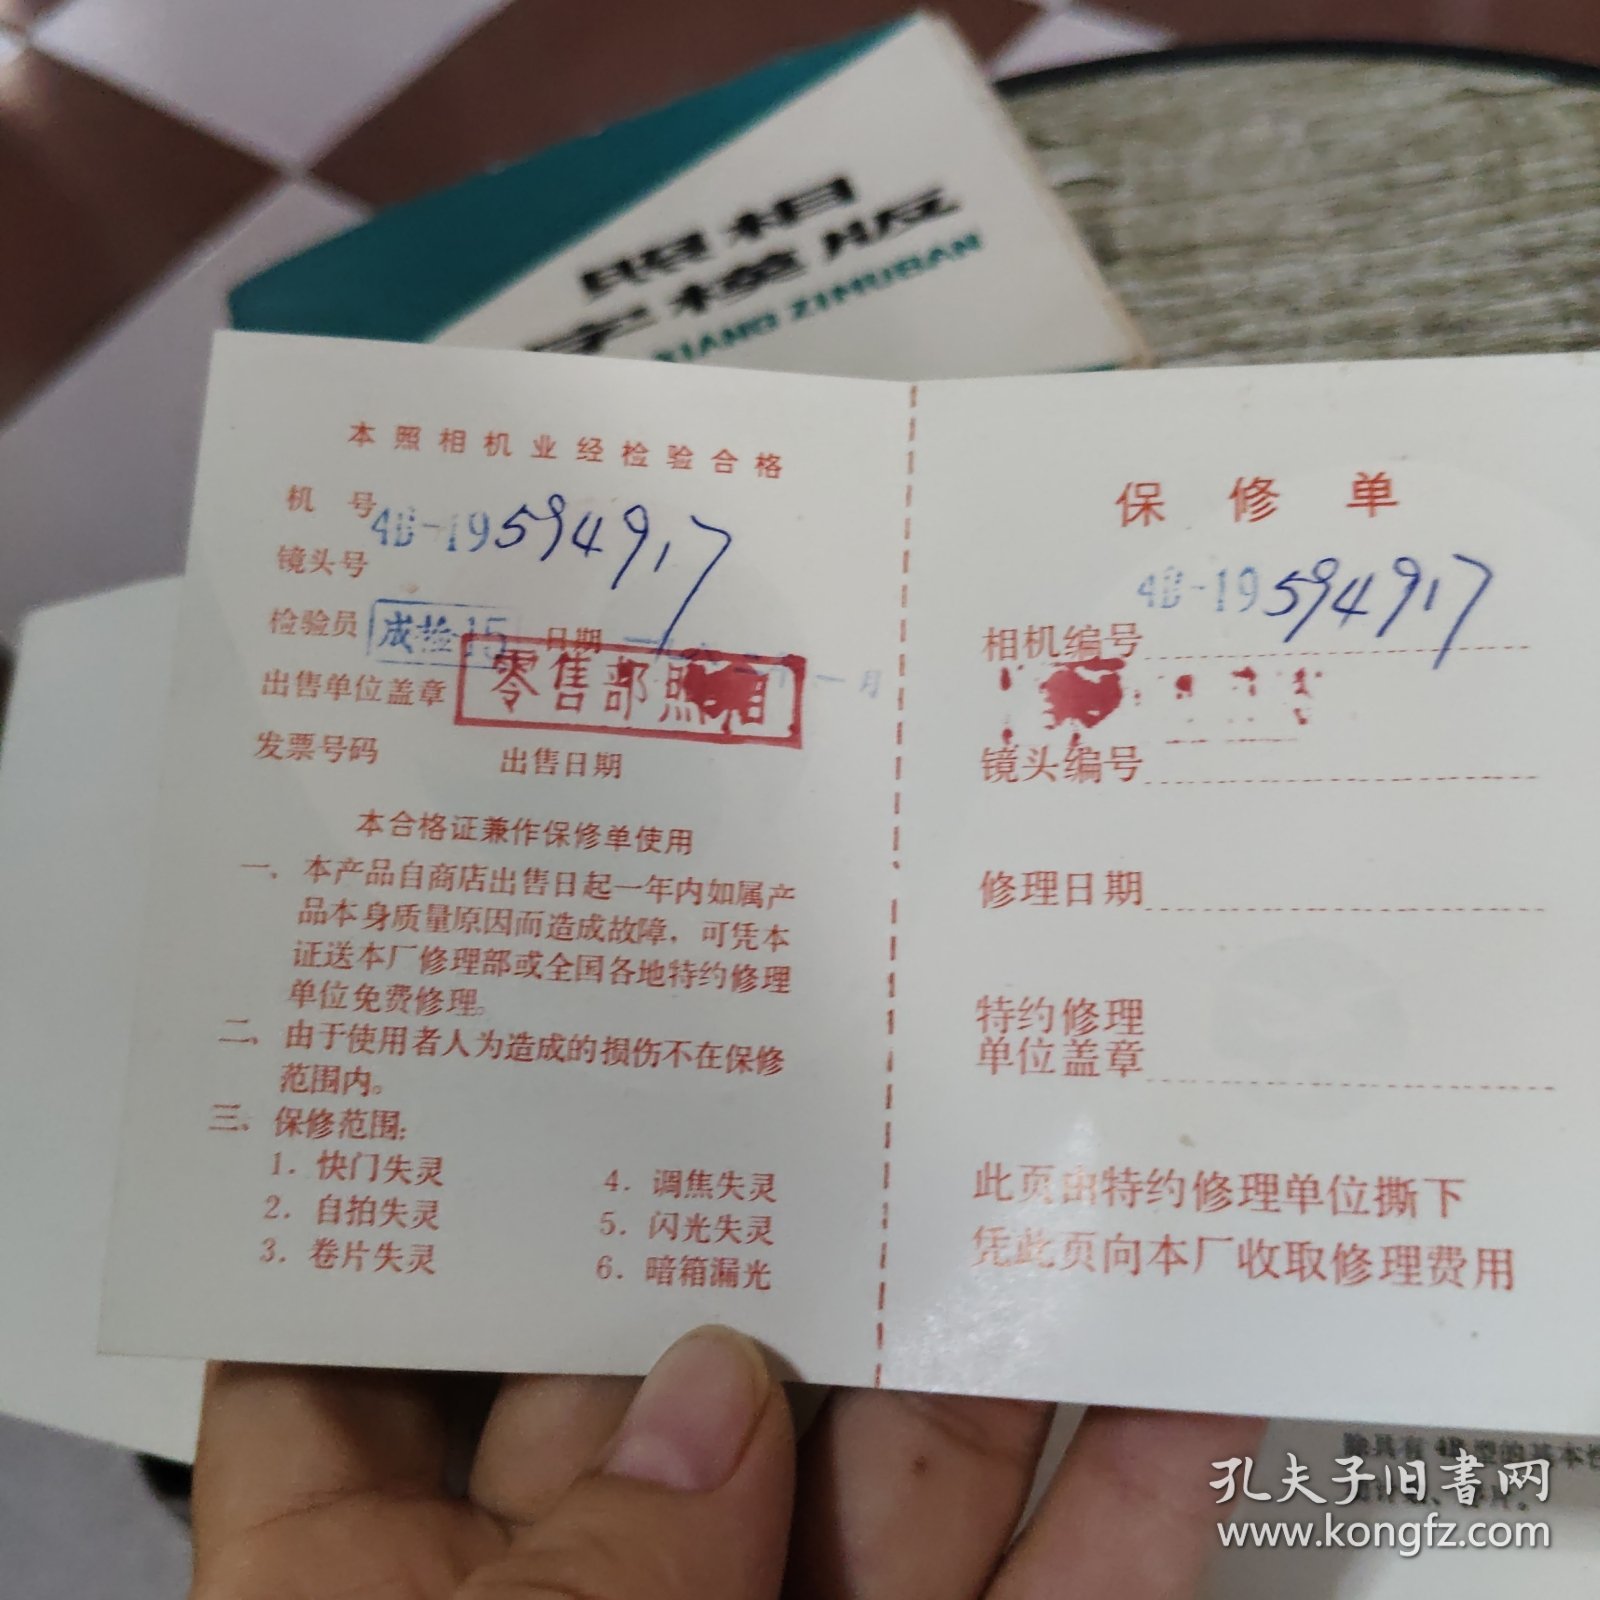 照相
字模版
XIANG ZIMUBAN
本照相机业经检验合格
机 号 4B-19594917
镜头号
检验员 成检15 日期
出售单位盖章 零售部照相
发票号码 出售日期
本合格证兼作保修单使用
一、本产品自商店出售日起一年内如属产
品本身质量原因而造成故障，可凭本
证送本厂修理部或全国各地特约修理
单位免费修理。
二、由于使用者人为造成的损伤不在保修
范围内。
三、保修范围:
1. 快门失灵
2. 自拍失灵
3. 卷片失灵
4. 调焦失灵
5. 闪光失灵
6. 暗箱漏光
保修单
相机编号 4B-19594917
镜头编号
修理日期
特约修理
单位盖章
此页由特约修理单位撕下
凭此页向本厂收取修理费用
除具有4B型的基本性
孔夫子旧书网
www.kongfz.com